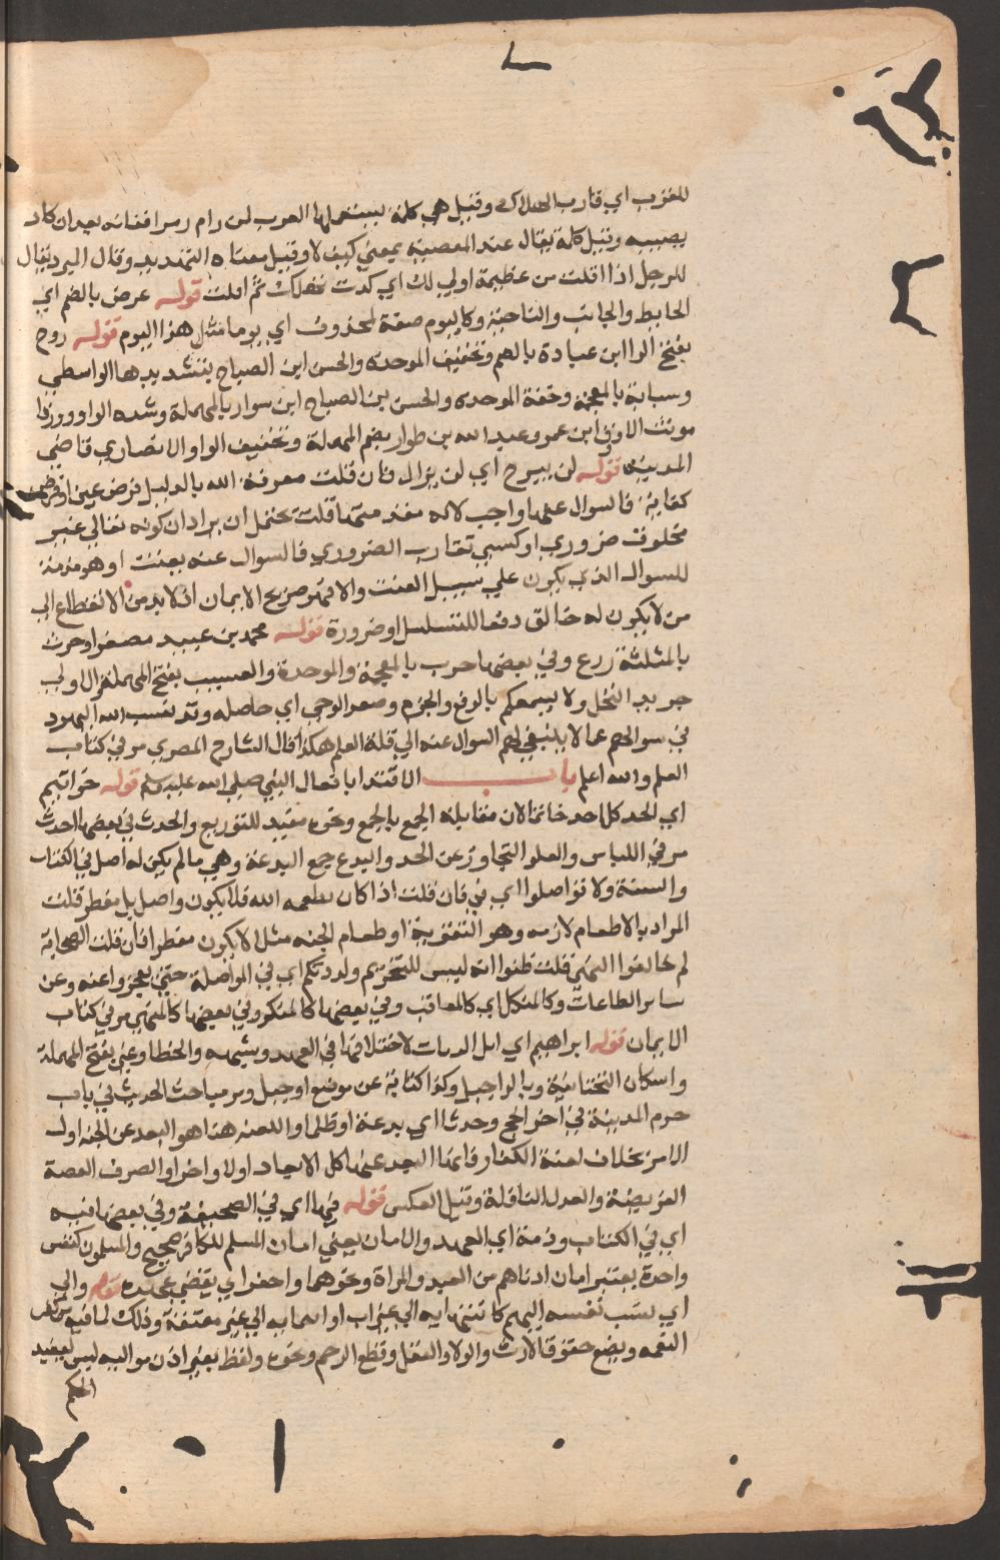 للعرب اي قارب الهلاك وقيل هي كلمة يستعملها العرب لمن رام امرا ففاته بعد ان كاد
يصيبه وقيل كلمة يقال عند المعصية بمعني كيف لا وقيل معناه التهديد وقال المبرد يقال
للرجل اذا افلت من عظيمة اولي لك اي كدت تهلك ثم افلت قوله عرض بالضم اي
الحايط والجانب والناحية وكاليوم صفة لمحذوف اي يوما مثل هذا اليوم قوله روح
بفتح الرا ابن عبادة بالضم وتخفيف الموحده والحسن ابن الصباح بتشديدها الواسطي
وسبابة بالمعجمة وخفة الموحده والحسن بن الصباح ابن سوار بالمهملة وشده الواو وورقا
مونث الاورق ابن عمر وعبد الله بن طوار بضم المهملة وتخفيف الواو الانصاري قاضي
المدينة قوله لن يبرح اي لن يزال فان قلت معرفة الله بالدليل فرض عين او فرض
كفاية فالسوال عنها واجب لانه مقدمتها قلت يحتمل ان يراد ان كونه تعالي غير
مخلوق ضروري او كسبي تقارب الضروري فالسوال عنه تعنت او هو مذمة
للسوال الذي يكون علي سبيل العنت والا فهو صريح الايمان اذ لا بد من الانقطاع الي
من لا يكون له خالق دفعا للتسلسل او ضرورة قوله محمد بن عبيد مصغرا وحرث
بالمثلثة زرع وفي بعضها خرب بالمعجمة والموحدة والعسيب بفتح المهملة الاولي
جريد النخل ولا يسمعكم بالرفع والجزم وصعد الوحي اي حامله وقد نسب الله اليهود
في سوالهم عما لا ينبغي لهم السوال عنه الي قلة العلم هكذا قال الشارح المصري مر في كتاب
العلم والله اعلم باب الاقتدا بافعال النبي صلي الله عليه وسلم قوله خواتيم
اي اتخذ كل احد خاتما لان مقابلة الجمع بالجمع ونحوه مفيد للتوزيع والحدث في بعضها الحديث
مر في اللباس والغلو التجاوز عن الحد والبدع جمع البدعة وهي ما لم يكن له اصل في الكتاب
والسنة ولا تواصلوا اي في فان قلت اذا كان يطعمه الله فلا يكون واصل بل مفطر قلت
المراد بالاطعام لازمه وهو التقوية او طعام الجنه مثلا لا يكون مفطرا فان قلت الصحابة
لم خالفوا النهي قلت ظنوا انه ليس للتحريم ولزدتكم اي في المواصلة حتي تعجزوا عنه وعن
ساير الطاعات وكالمنكل اي كالمعاقب وفي بعضها كالمنكر وفي بعضها كالمنهي مر في كتاب
الايمان قوله ابراهيم اي ابل الديات لاختلافها في العمد وشبهه والخطا وعير بفتح المهملة
واسكان التحتانية وبالرا جبل وكذا كناية عن موضع او جبل ومر مباحث الحديث في باب
حرم المدينة في اخر الحج وحدثا اي بدعة او ظلما واللعنة هنا هو البعد عن الجنه اول
الامر بخلاف لعنة الكفار فانها البعد عنها كل الابعاد اولا واخرا والصرف
الفريضة والعدل النافلة وقيل العكس قوله فيها اي في الصحيفة وفي بعضها فيه
اي في الكتاب وذمة اي العهد والامان يعني امان المسلم للكافر صحيح والمسلمون كنفس
واحدة يعتبر امان ادناهم من العبد والمراة ونحوهما واخفر اي نقض عهده قوله والي
اي نسب نفسه اليهم كانتمايه الي غير ابيه او انتمايه الي غير معتقه وذلك لما فيه من كفر
النعمه وتضيع حقوق الارث والولا والعقل وقطع الرحم ونحوه ولفظ بغير اذن مواليه ليس لتقييد
الحكم